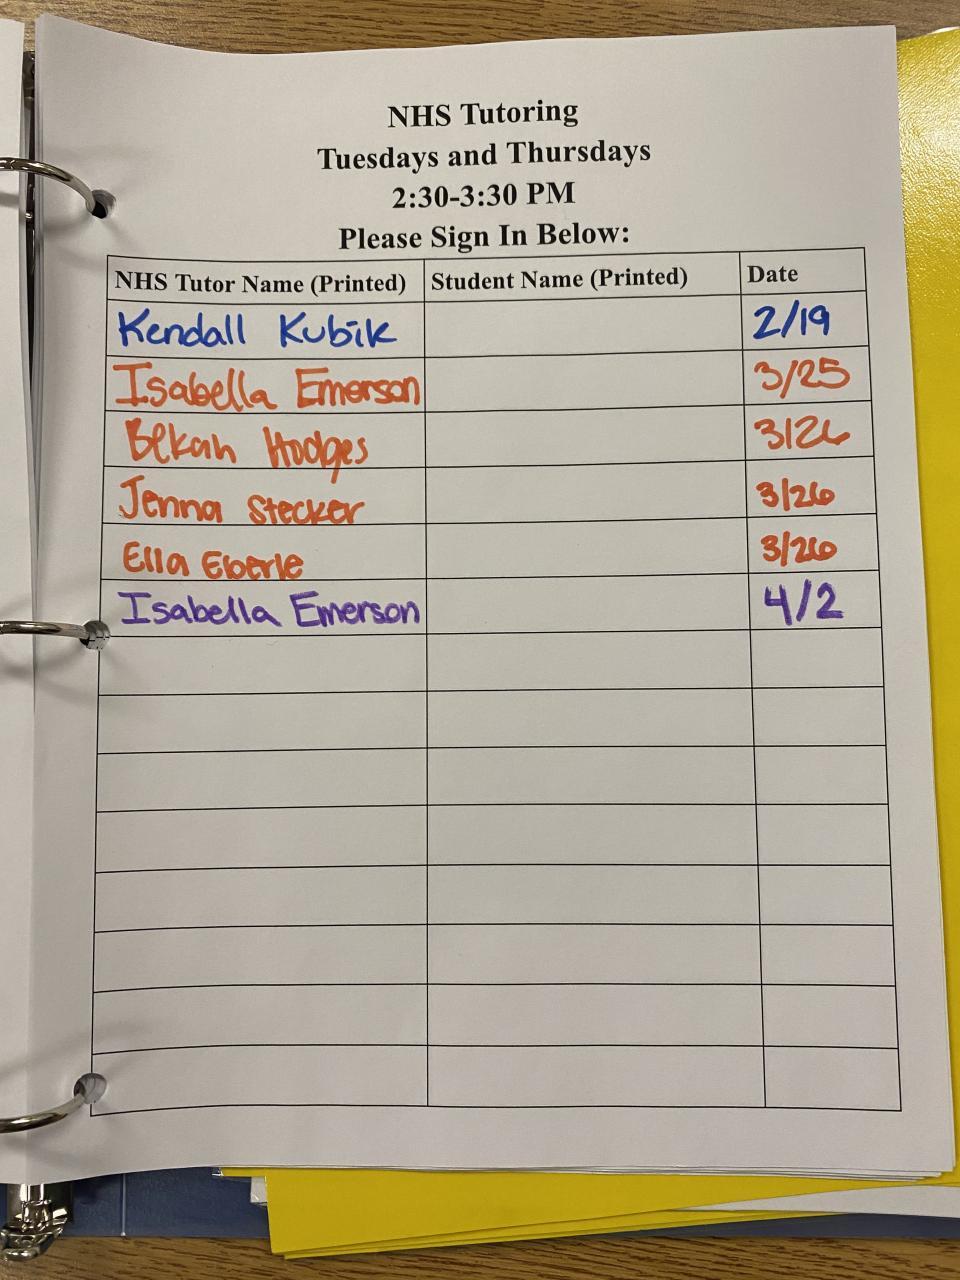 NHS Tutoring
Tuesdays and Thursdays
2:30-3:30 PM
Please Sign In Below:
NHS Tutor Name (Printed) Student Name (Printed) Date
Kendall Kubik 2/19
Isabella Emerson 3/25
Bekah Hodges 3/26
Jenna Stecker 3/26
Ella Eberle 3/26
Isabella Emerson 4/2